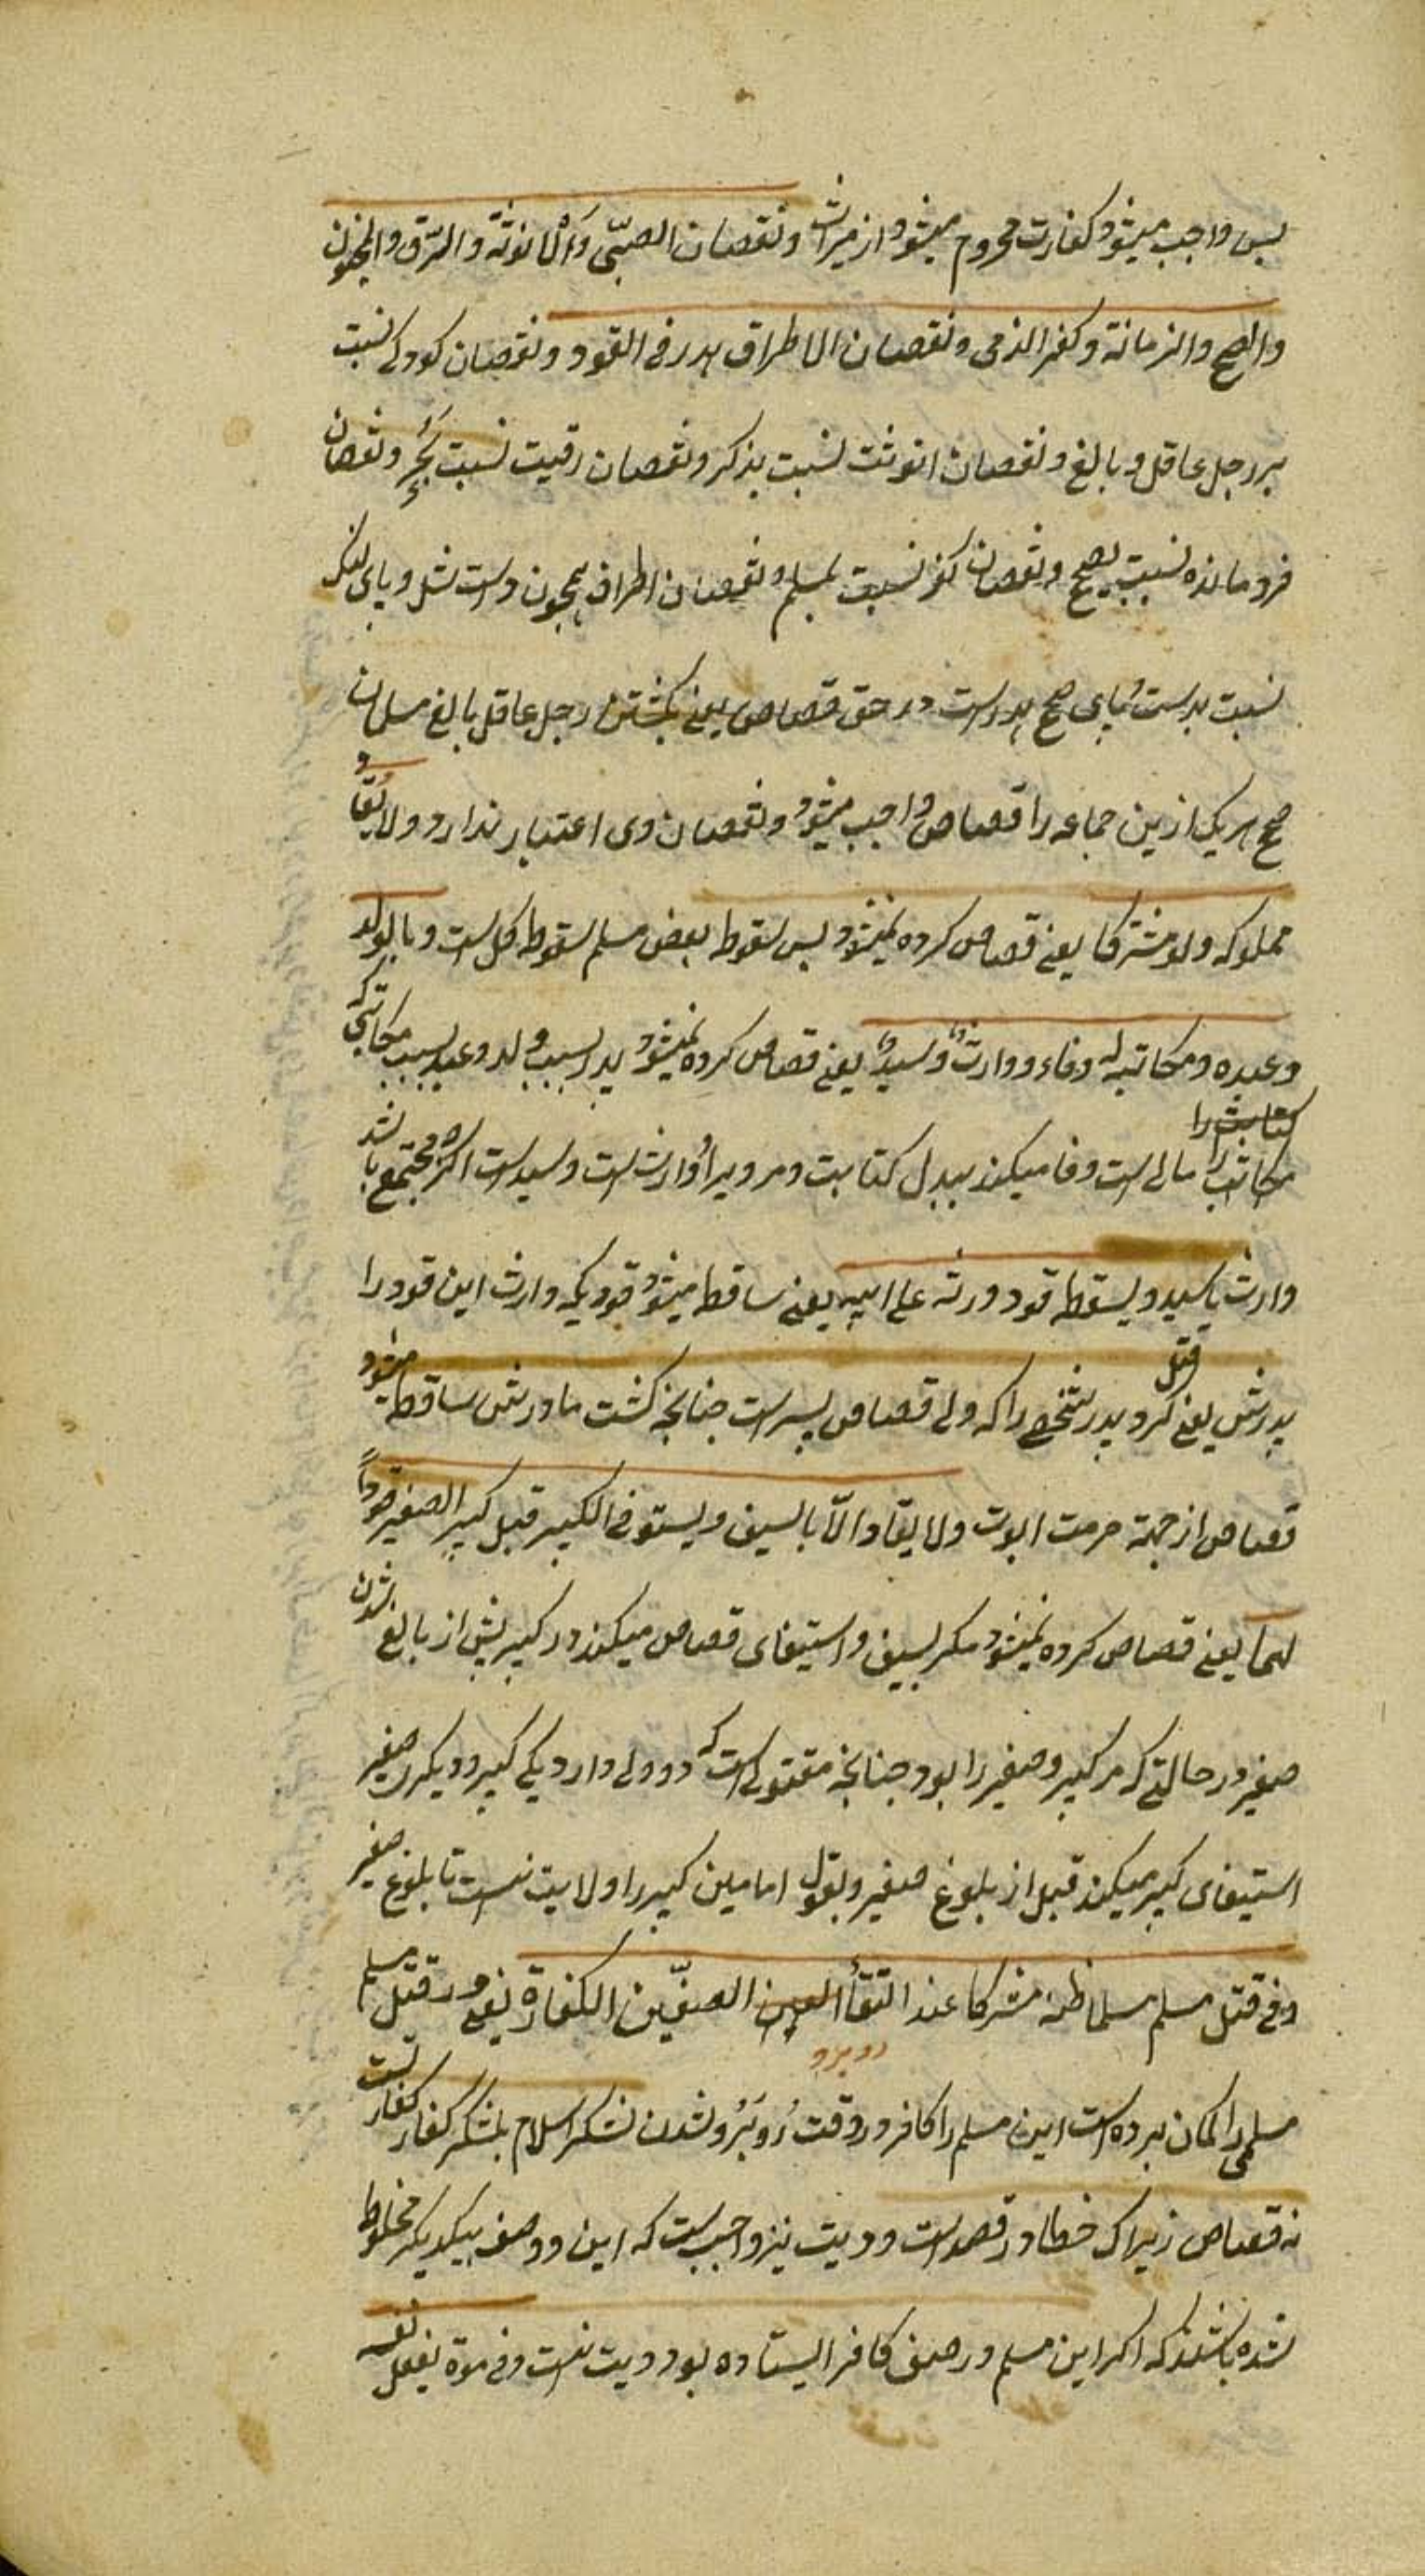 پس واجب میشود کفارت محروم میشود از میراث ونقصان الصبّی وَالْانوثة والرّق والجنون
والصح والزمانة وکفر الذمی ونقصان الاطراف هدر فی القود ونقصان کودکی نسبت
بر رجل عاقل وبالغ ونقصان انوثت نسبت بذکر ونقصان رقیت نسبت بحُرٍّ ونقصان
فرومانده نسبت بصحیح ونقصان کفر نسبت بمسلم ونقصان اطراف همچون دست شل وپای لنک
نسبت بدست وپای صحیح هدر است در حق قصاص یعنی بکشتن رجل عاقل بالغ مسلمان
صحیح هر یک ازین جماعه را قصاص واجب میشود ونقصان وی اعتبار ندارد ولا یُقاد
مملوکه ولو مشترکا یعنی قصاص کرده نمیشود پس سقوط بعض مسلم سقوط کل است وبالولد
وعبده ومکاتبه له وفاء ووارثٌ وسیدٌ یعنی قصاص کرده نمیشود پدر بسبب ولد وعبد بسبب مکاتبی که
مکاتب را مالی است وفا میکند ببدل کتابت ومر ویرا وارث است وسید است اکرچه مجتمع باشد
وارث با سید ویسقط قود ورثه علی ابیه یعنی ساقط میشود قودیکه وارث این قود را
پدرش یعنی قتل کرد پدر شخصی را که ولی قصاص پسر است چنانچه کشت مادرش ساقط میشود
قصاص از جهة حرمت ابوت ولا یقاد الّا بالسیف ویستوفی الکبیر قبل کبر الصغیر قودًا
لهما یعنی قصاص کرده نمیشود مکر بسیف واستیفای قصاص میکند در کبیر پیش از بالغ شدن
صغیر در حالتی که مر کبیر وصغیر را بود چنانچه مقتولی است که دو ولی دارد یکی کبیر ودیکری صغیر
استیفای کبیر میکند قبل از بلوغ صغیر وبقول امامین کبیر را ولایت نیست تا بلوغ صغیر
وفی قتل مسلم مسلما ظنه مشرکا عند التقأ الصفّین الکفارة یعنی ودر قتل مسلم
مسلمی را کمان برده است این مسلم را کافر در وقت رُوبَرُو شدن لشکر اسلام بلشکر کفار کفارتست
روبرو
نه قصاص زیراک خطا در قصد است ودیت نیز واجب است که این دو صف بیکدیکر مخلوط
شده باشند که اکر این مسلم در صف کافر ایستاده بود دیت نیست وفی موته بفعل نفسه